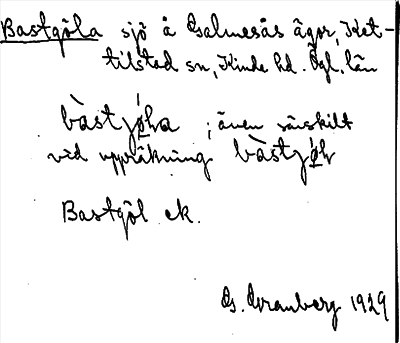 Bastgöla sjö å Galmesås ägor, Ket-
tilstad sn, Kinda hd. Ögl. län
bàstjø̀la ; även särskilt
vid uppräkning bàstjø̀l
Bastgöl ek.
G. Granberg 1929